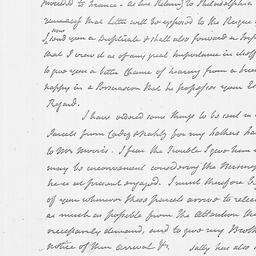 proceeded to France. as his Return to Philadelphia
that Letter will be exposed to the Risque of
I send you a Duplicate & shall also forward a
that I view it as of any great Importance in itself
to give you a better Chance of hearing from a
happy in a Persuasion that he possesses your
Regard.
I have ordered some things to be sent in a
Parcel from Cadiz & probably for my Fathers
to Mr Morris. I fear the Trouble I give him
may be inconvenient considering the
he is at present engaged. I must therefore
of you whenever those parcels arrive to
as much as possible from the Attention
necessarily demand, and to give my Brother
notice of their arrival &c. Sally has also